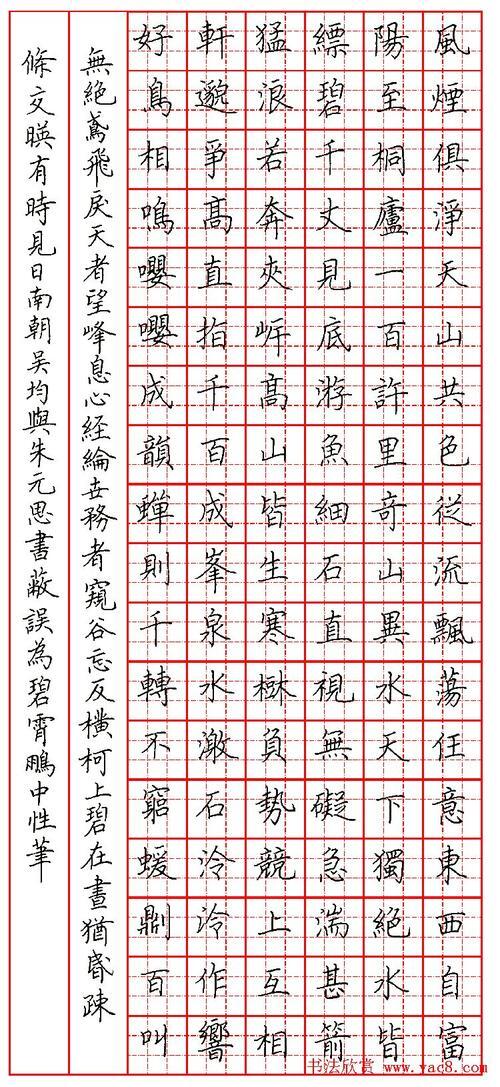 風煙俱淨天山共色從流飄蕩任意東西自富
陽至桐廬一百許里奇山異水天下獨絕水皆
縹碧千丈見底游魚細石直視無礙急湍甚箭
猛浪若奔夾岸高山皆生寒樹負勢競上互相
軒邈爭高直指千百成峯泉水激石泠泠作響
好鳥相鳴嚶嚶成韻蟬則千轉不窮蝯則百叫
無絕鳶飛戾天者望峰息心經綸世務者窺谷忘反橫柯上碧在晝猶昏疎
條交暎有時見日南朝吳均與朱元思書蔽誤為碧霄鵬中性筆
书法欣赏 www.yac8.com